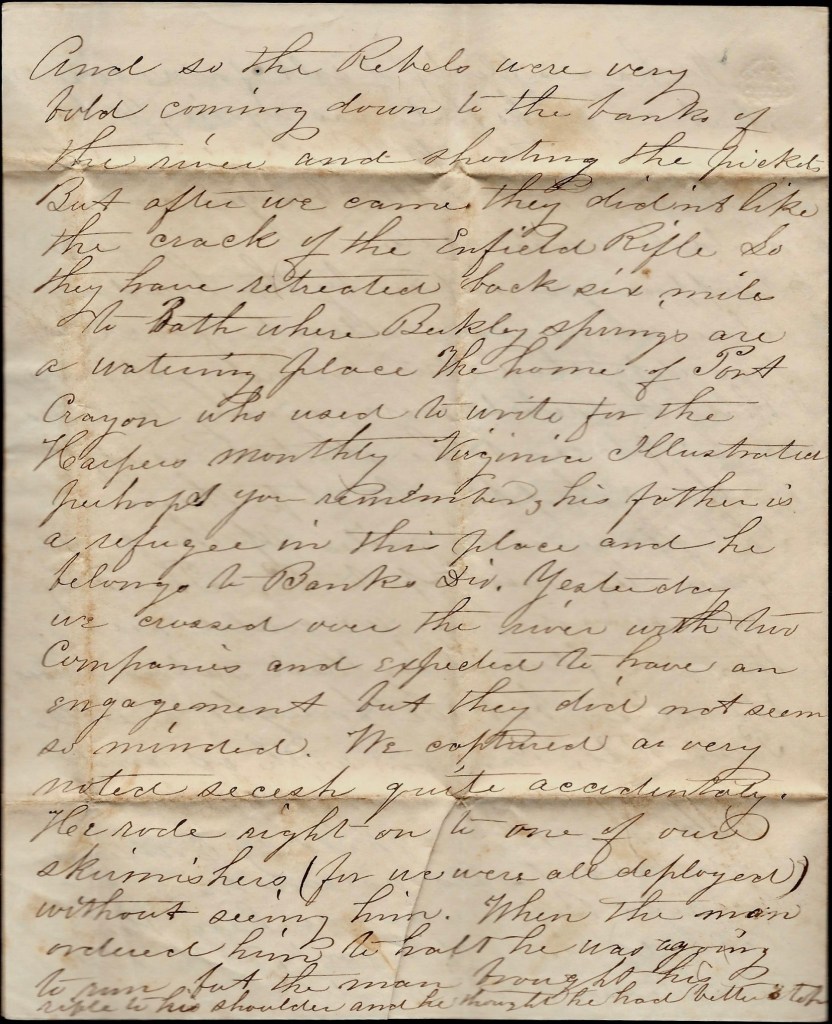 And so the Rebels were very
bold coming down to the banks of
the river and shooting the pickets
But after we came they didnt like
the crack of the Enfield Rifle So
they have retreated back six mile
to Bath where Berkley springs are
a watering place the home of Port
Crayon who used to write for the
Harpers monthly Virginia Illustrated
perhaps you remember, his father is
a refugee in this place and he
belongs to Banks Div. Yesterday
we crossed over the river with two
Companies and expected to have an
engagement but they did not seem
so minded. We captured a very
noted secesh quite accidentaly.
He rode right on to one of our
skirmishers (for we were all deployed)
without seeing him. When the man
ordered him to halt he was agoing
to run but the man brought his
rifle to his shoulder and he thought he had better stop